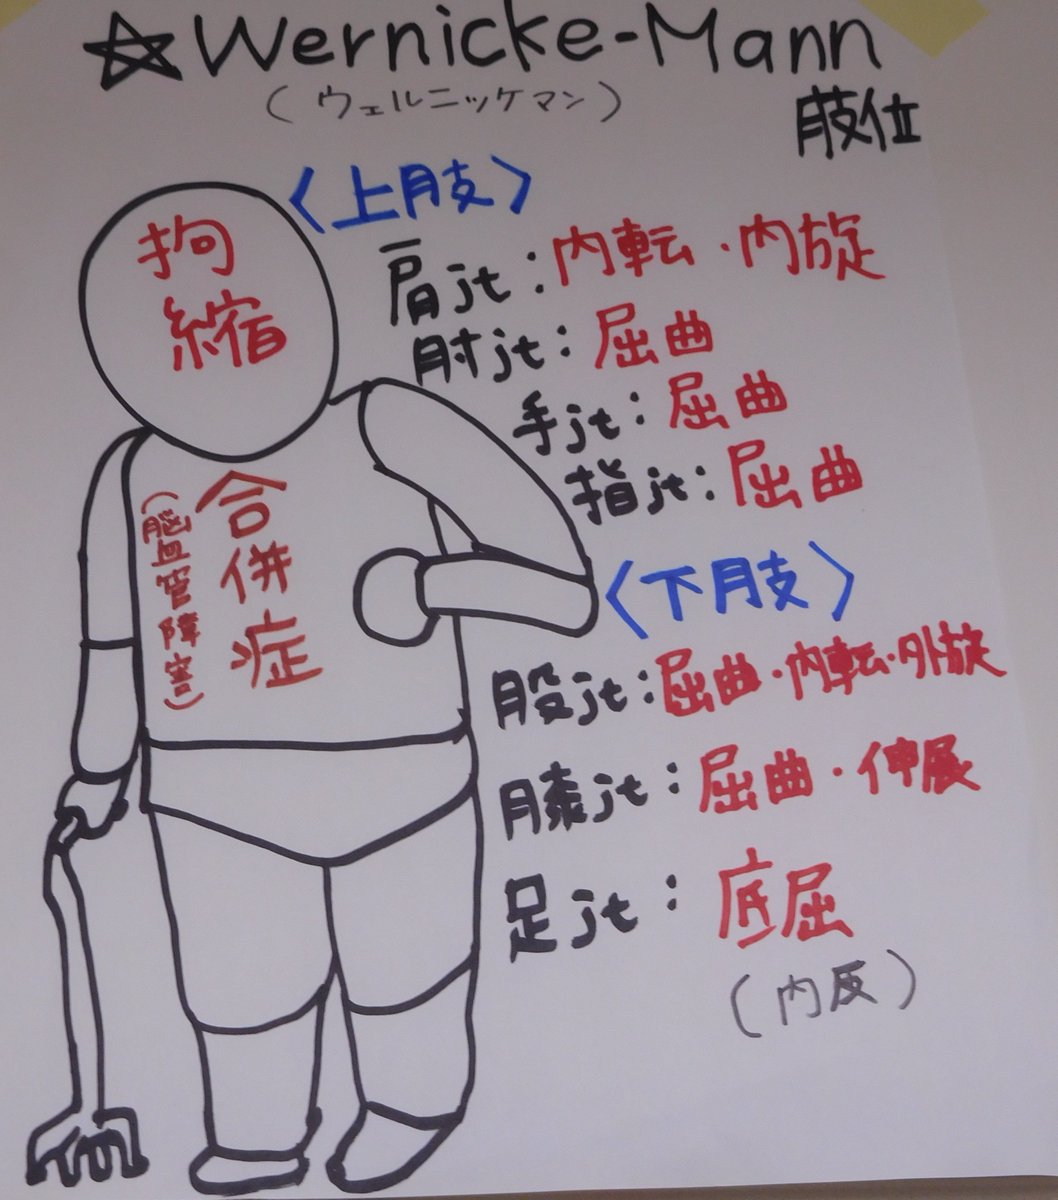 ☆Wernicke-Mann
(ウェルニッケマン)
肢位
〈上肢〉
肩jt:内転・内旋
肘jt:屈曲
手jt:屈曲
指jt:屈曲
〈下肢〉
股jt:屈曲・内転・外旋
膝jt:屈曲・伸展
足jt:底屈
(内反)
拘縮
合併症
(脳血管障害)